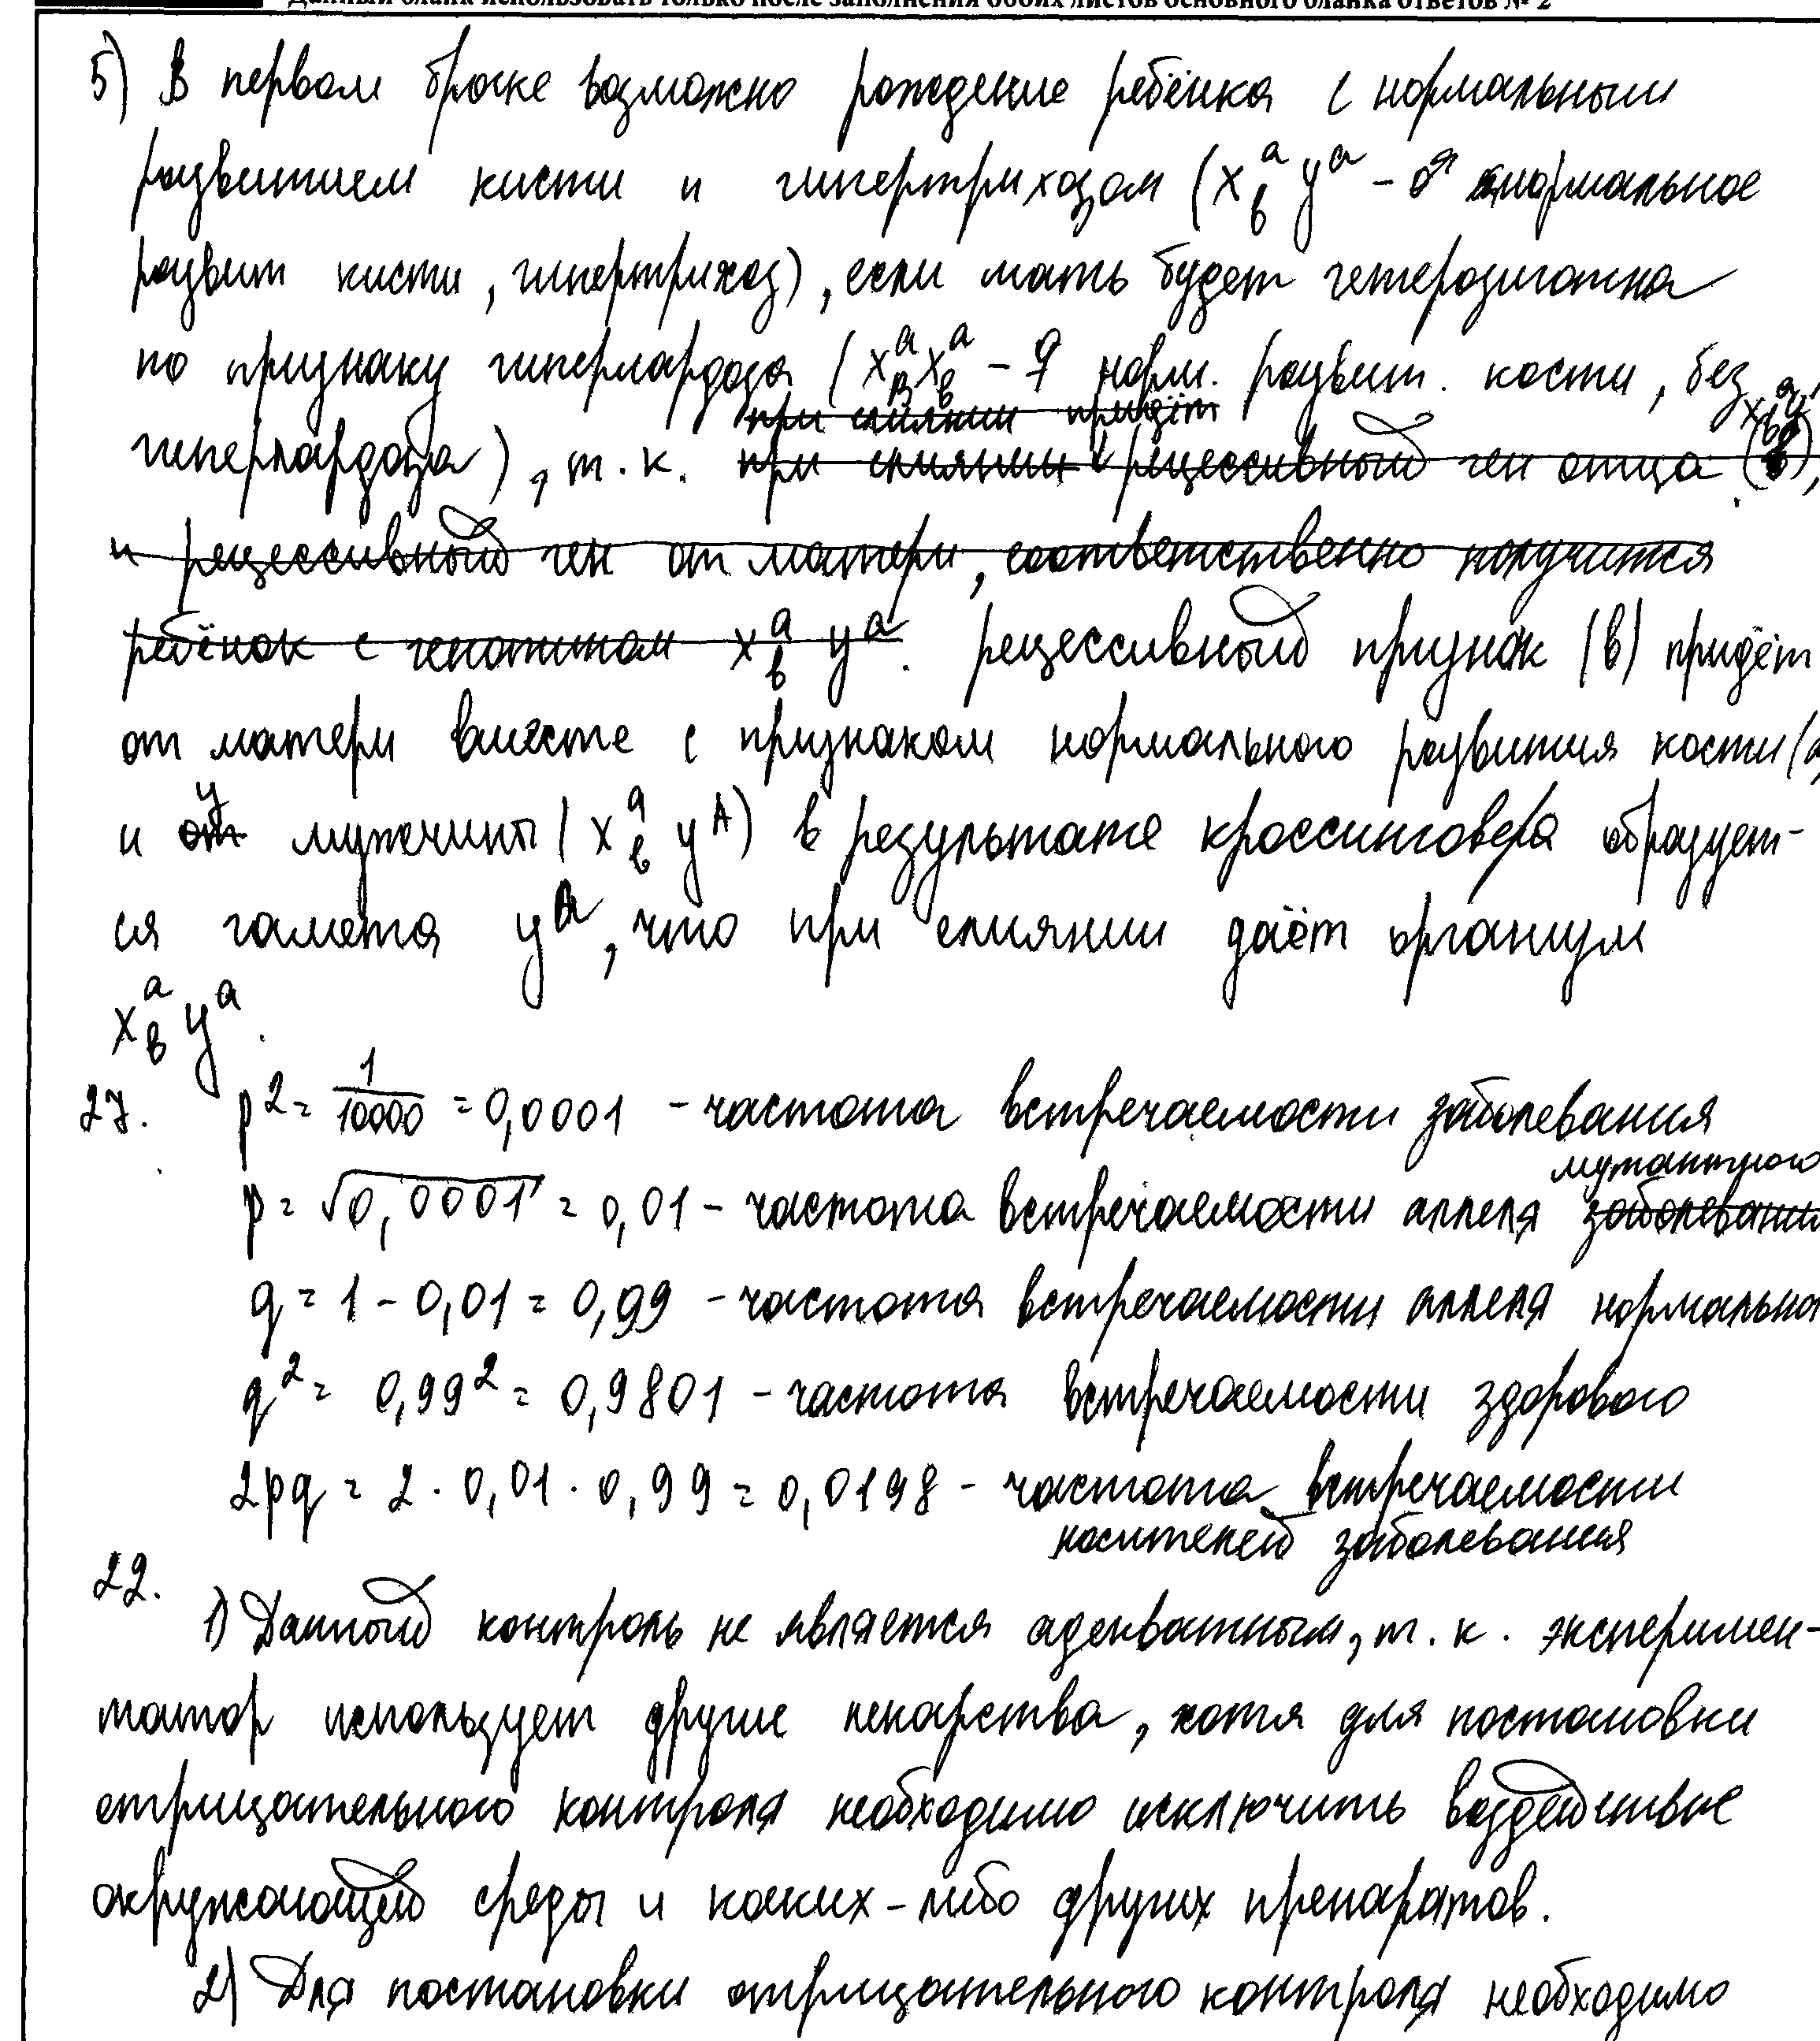 Данный бланк использовать только после заполнения обоих листов основного бланка ответов № 2
5) В первом браке возможно рождение ребёнка с нормальным
развитием кисти и гипертрихозом (X^a_b Y^a - ♂ нормальное
развит кисти, гипертрихоз), если мать будет гетерозигатна
по признаку гиперлардоза (X^a_B X^a_b - ♀ норм. развит. кости, без
при слиянии придёт
гиперлардоза), т.к. при слиянии рецессивный ген отца
и рецессивный ген от матери, соответственно получится
ребёнок с генотипом X^a_b Y^a. рецессивный признак (b) придёт
от матери вместе с признаком нормального развития кости (a
и у мужчины (X^a_b Y^A) в результате кроссинговера образует-
ся гамета Y^a, что при слиянии даёт организм
X^a_b Y^a.
27. p^2 = 1/10000 = 0,0001 - частота встречаемости заболевания
p = √0,0001 = 0,01 - частота встречаемости аллеля мутантного заболевания
q = 1 - 0,01 = 0,99 - частота встречаемости аллеля нормально
q^2 = 0,99^2 = 0,9801 - частота встречаемости здорового
2pq = 2 · 0,01 · 0,99 = 0,0198 - частота встречаемости
носителей заболевания
22.
1) Данный контроль не является адекватным, т.к. эксперимен-
татор использует другие лекарства, хотя для постановки
отрицательного контроля необходимо исключить воздействие
окружающей среды и каких-либо других препаратов.
2) Для постановки отрицательного контроля необходимо